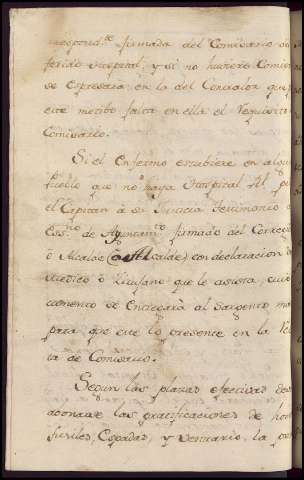 firmada del Comisario
ferido Hospital; y si no huviere Comis
se espresara en la del Contralor que p
este motibo falta en ella el Requisito
Comisario.
Si el Enfermo estubiere en algun
Pueblo que no haya Hospital
el Capitan a su Justicia testimonio
Essno. de Ayuntamto. firmado del Correg
ò Alcalde (ò Alcalde) con declaracion de
Medico ò Zirujano que le asista, cuio
cumento se Entregarà al Sargento ma
para que este lo presente en la Re
ta de Comisario.
Segun las plazas efectivas de
abonarse las gratificaciones de hom
fusiles, Espadas, y Vestuario, la